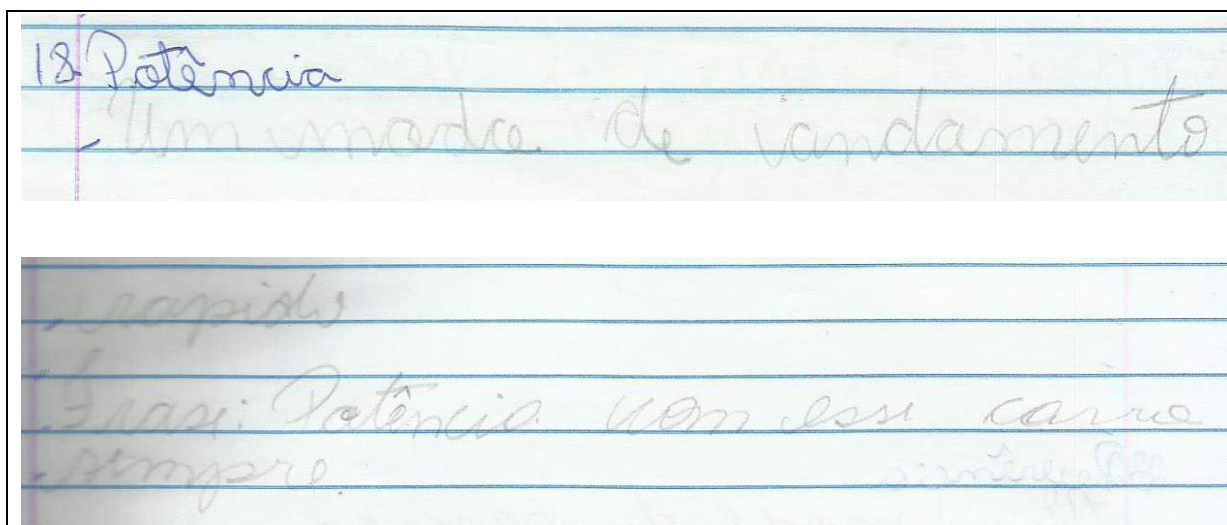 18 Potência
Um modo de andamento
rapido
Frase: Potência com esse carro
sempre.